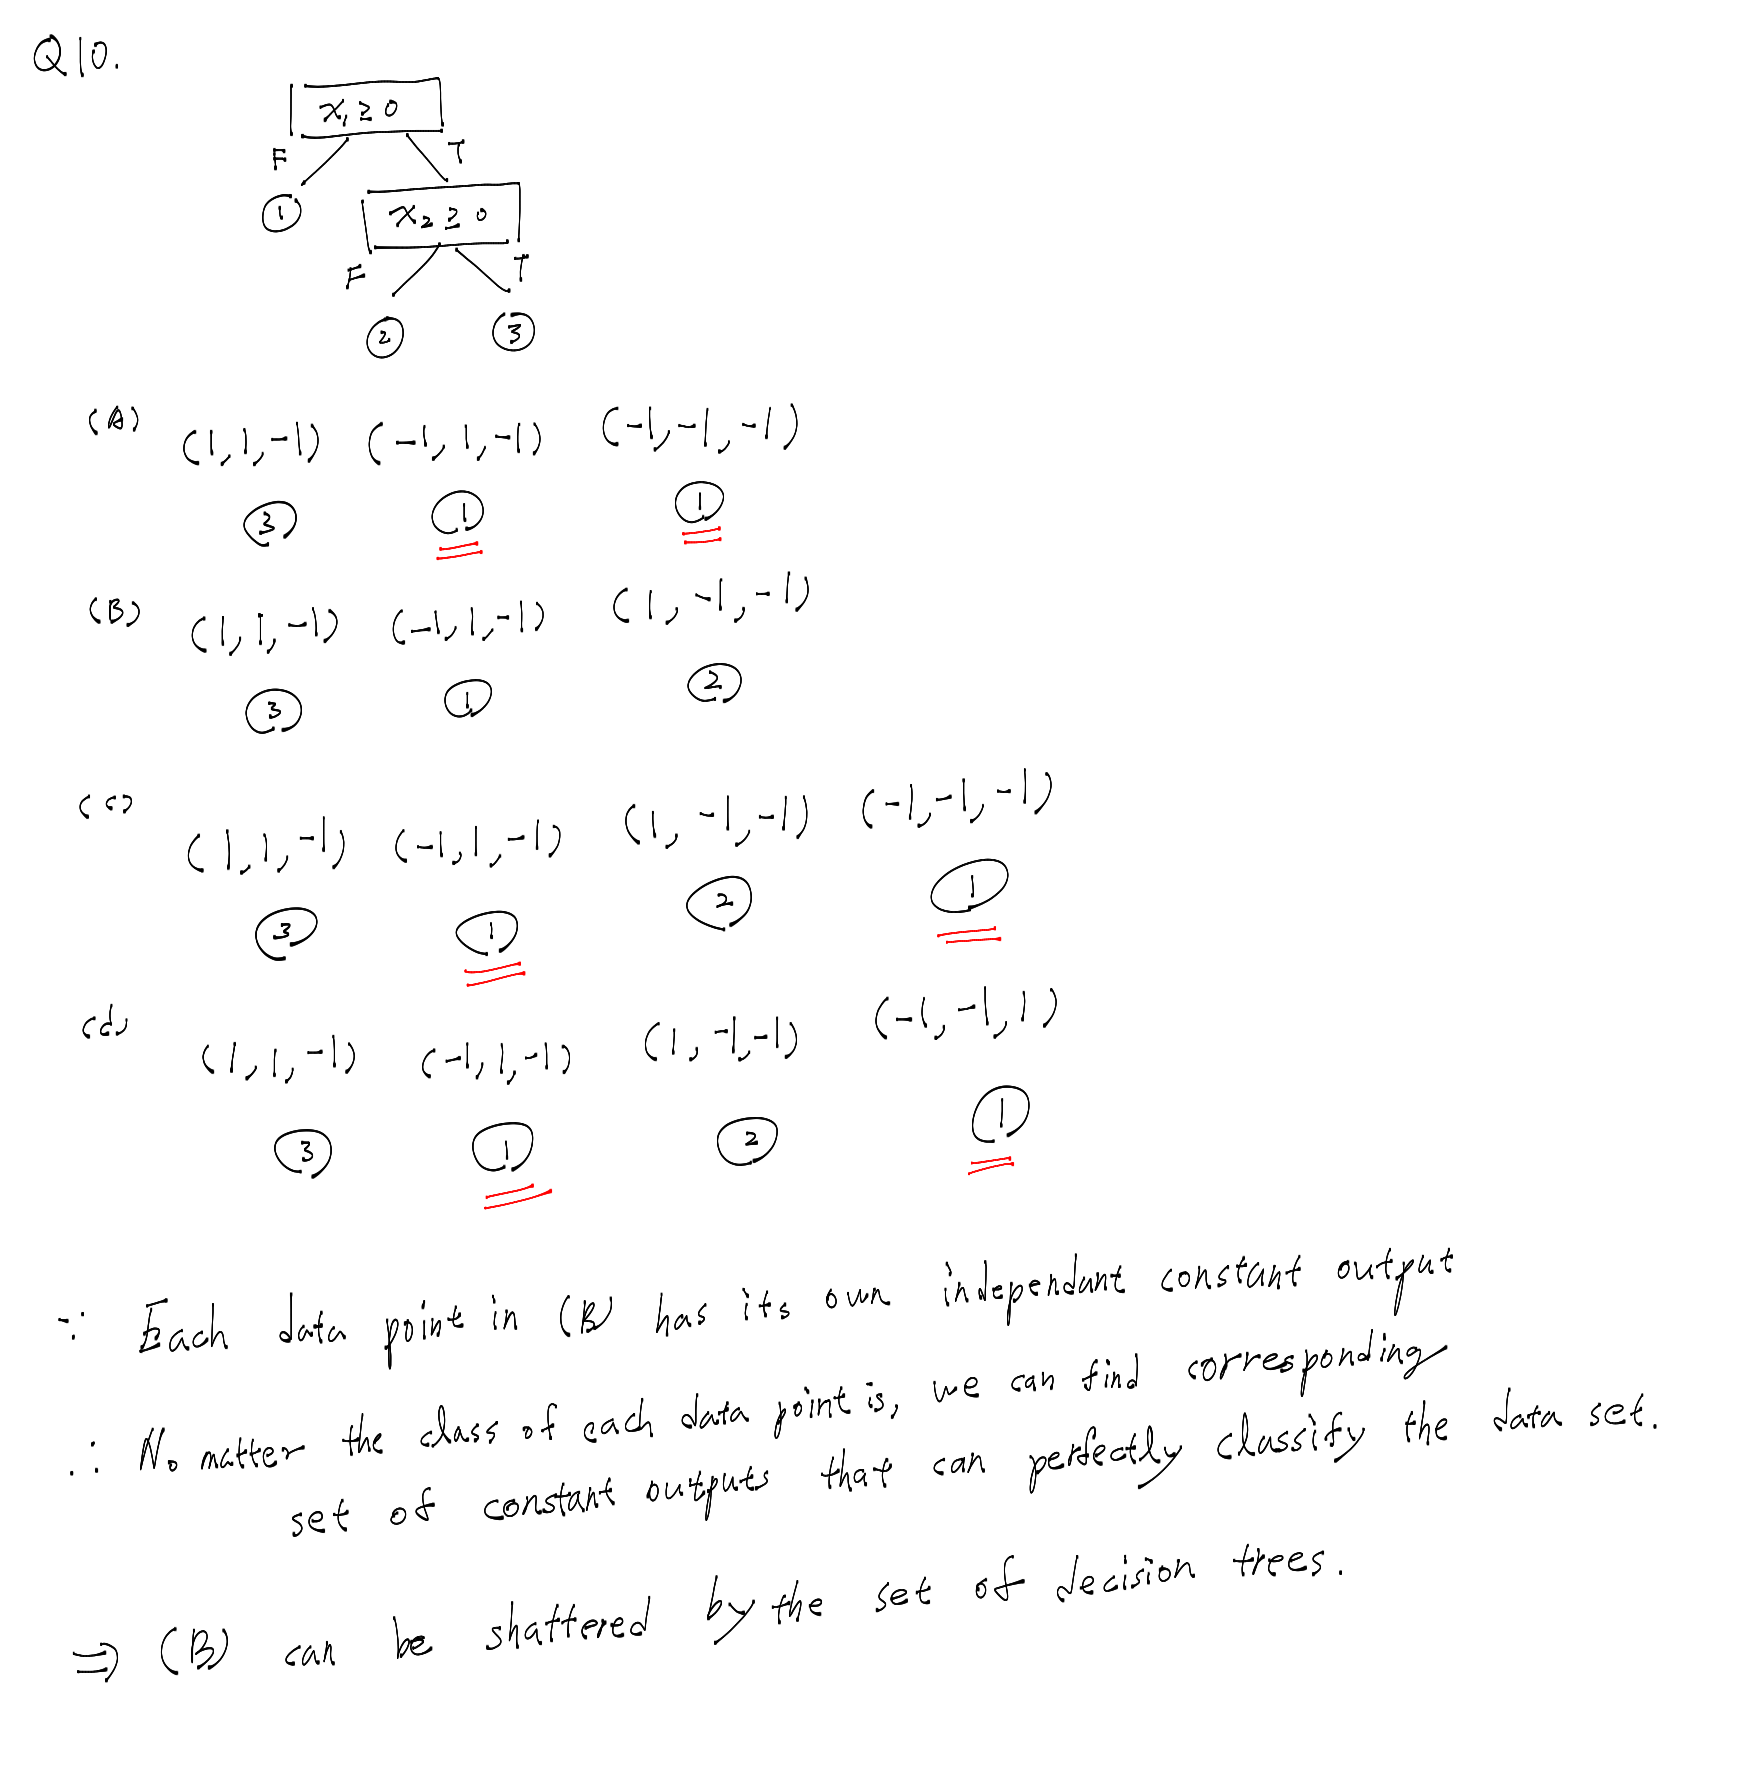 Q10.
x₁ ≥ 0
F T
① x₂ ≥ 0
F T
② ③
(A) (1,1,-1) (-1,1,-1) (-1,-1,-1)
③ ① ①
(B) (1,1,-1) (-1,1,-1) (1,-1,-1)
③ ① ②
(c) (1,1,-1) (-1,1,-1) (1,-1,-1) (-1,-1,-1)
③ ① ② ①
(d) (1,1,-1) (-1,1,-1) (1,-1,-1) (-1,-1,1)
③ ① ② ①
∵ Each data point in (B) has its own independant constant output
∴ No matter the class of each data point is, we can find corresponding
set of constant outputs that can perfectly classify the data set.
⇒ (B) can be shattered by the set of decision trees.